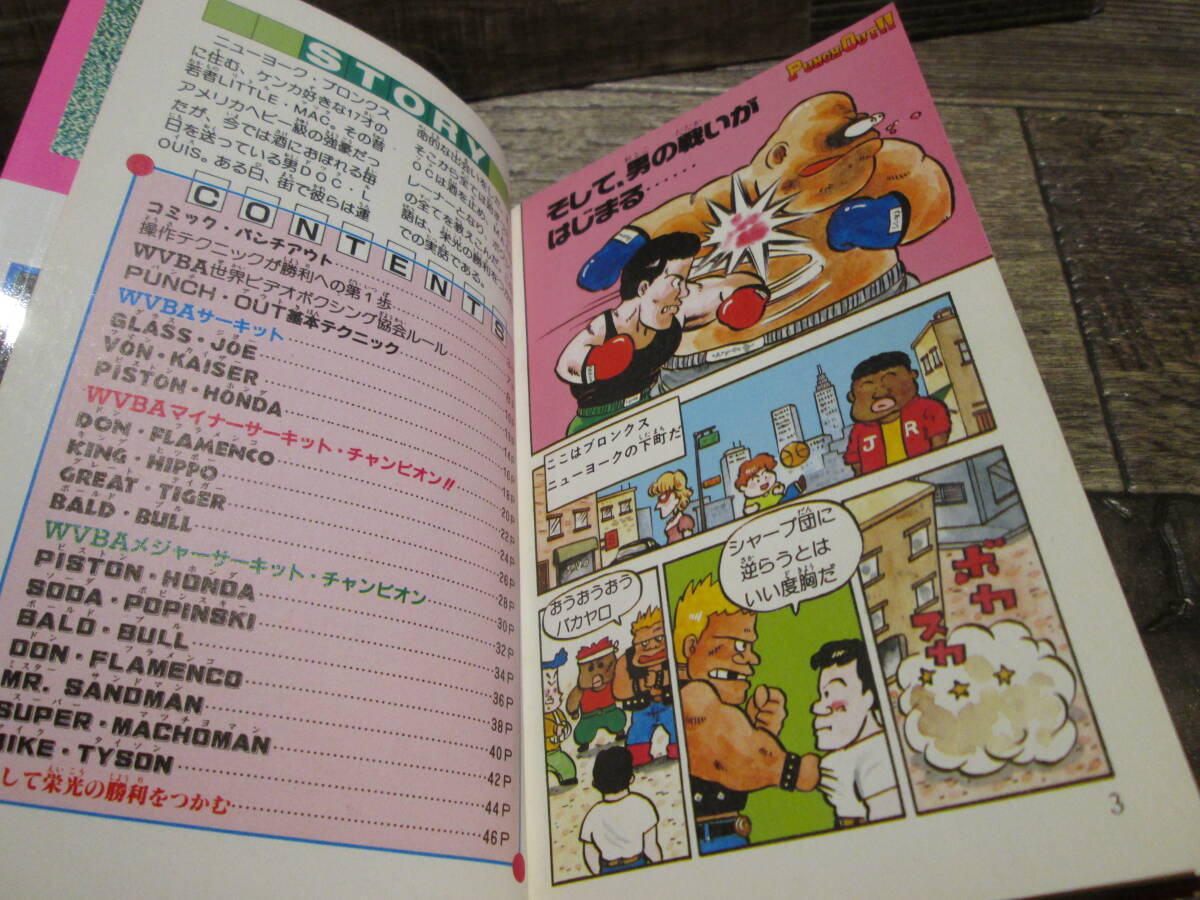 STORY
ニューヨーク・ブロンクス
に住む、ケンカ好きな17才の
若者LITTLE・MAC。その昔
アメリカヘビー級の強豪だっ
たが、今では酒におぼれる毎
日を送っている男DOC・L
OUIS。ある日、街で彼らは運
面的な出会いを
そこから全ては
OCは酒を止め、M
レーナーとなり、ボ
の全てを教えこんだ。
語は、栄光の勝利を
での実話である。
CONTENTS
コミック・パンチアウト
操作テクニックが勝利への第1歩
WVBA世界ビデオボクシング協会ルール
PUNCH・OUT基本テクニック
WVBAサーキット
GLASS・JOE
VON・KAISER
PISTON・HONDA
WVBAマイナーサーキット・チャンピオン!!
DON・FLAMENCO
KING・HIPPO 18P
GREAT・TIGER 20P
BALD・BULL 22P
WVBAメジャーサーキット・チャンピオン
PISTON・HONDA 28P
SODA・POPINSKI 30P
BALD・BULL 32P
DON・FLAMENCO 34P
MR. SANDMAN 36P
SUPER・MACHOMAN 40P
MIKE・TYSON 42P
して栄光の勝利をつかむ 44P
46P
PUNCH OUT!!
そして、男の戦いが
はじまる……
ここはブロンクス
ニューヨークの下町だ
JR
おうおうおう
バカヤロ
シャープ団に
逆らうとは
いい度胸だ
ボカ
スカ
3